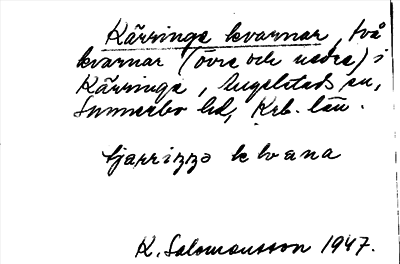 Kärringe kvarnar, två
kvarnar (övre och nedre) i
Kärringe, Angelstads sn,
Sunnerbo hd, Krb. län.
K. Salomonsson 1947.